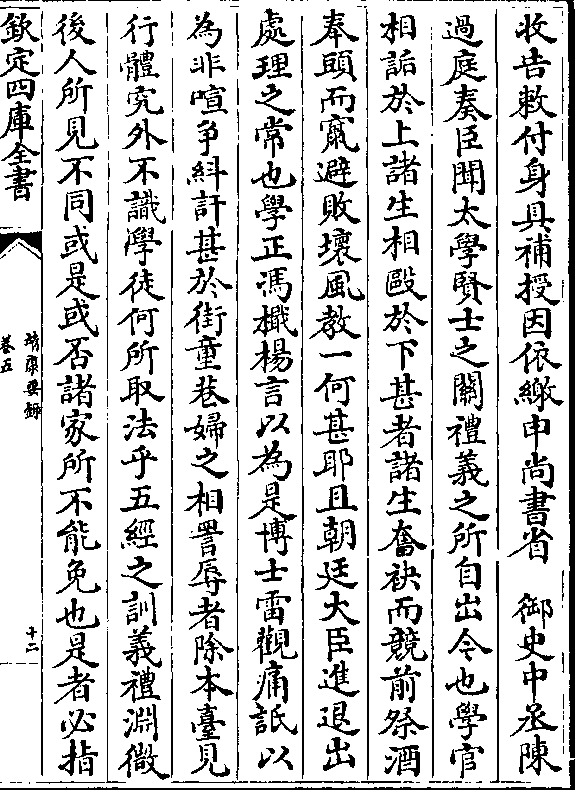 收告敕付身具補授因依繳申尚書省　御史中丞陳
過庭奏臣聞太學賢士之關禮義之所自出今也學官
相詬於上諸生相毆於下甚者諸生奮袂而競前祭酒
奉頭而竄避敗壞風教一何甚耶且朝廷大臣進退出
處理之常也學正馮檝楊言以為是博士雷觀痛詆以
為非喧爭糾訐甚於街童巷婦之相詈辱者除本臺見
行體究外不識學徒何所取法乎五經之訓義禮淵微
後人所見不同或是或否諸家所不能免也是者必指
欽定四庫全書
靖康要錄
卷五
十二